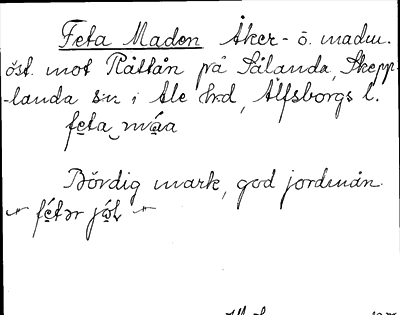 Feta Maden Åker- o. madm.
öst. mot Råttån på Sålanda, Skepp-
-landa sn i Ale hrd, Älfsborgs l.
feta måa
Bördig mark, god jordmån.
fétər jó